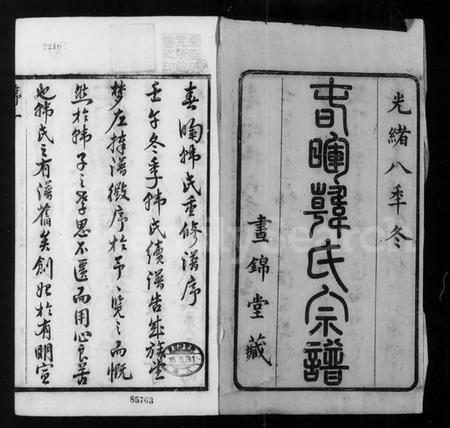 光緒八季冬
春暉韓氏宗譜
晝錦堂藏
春暉韓氏重修譜序
壬午冬季韓氏續譜告成族
夢左擇譜徵序於予予覽之而慨
然於韓子之孝思不匱而用心良苦
也韓氏之有譜舊矣創始於有明宣
序 一
22162
85763
15.8.31